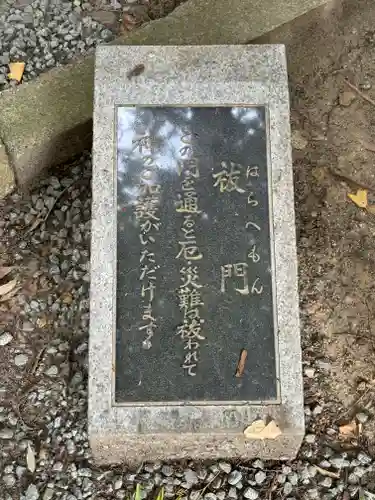 祓門
はらへもん
この門を通ると厄・災難は祓われて
神のご加護がいただけます